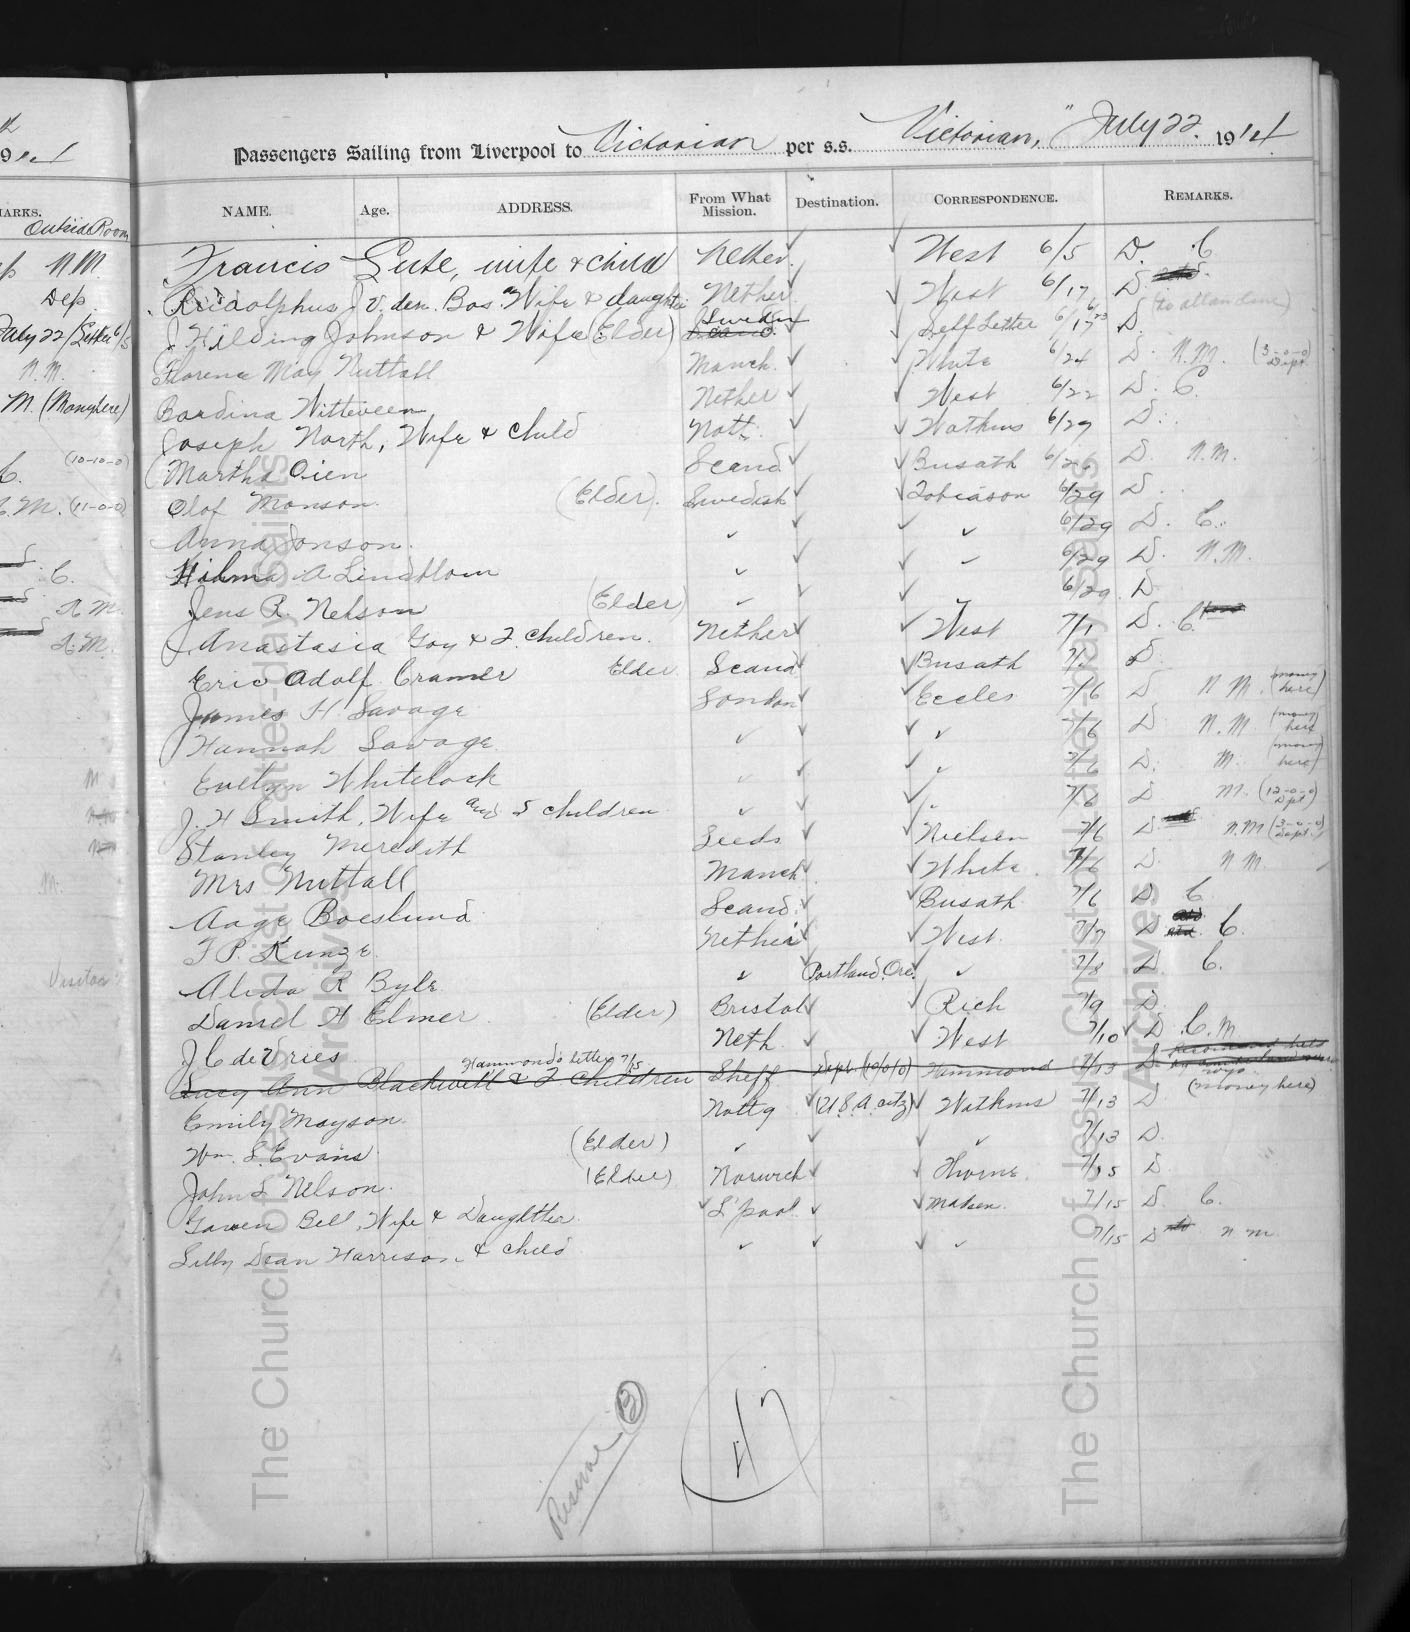 Passengers Sailing from Liverpool to Victorian per s.s. Victorian, July 22. 1914
NAME. Age. ADDRESS. From What Mission. Destination. CORRESPONDENCE. REMARKS.
Francis Lute, wife & child Nether. West 6/5 D. C
Rudolphus J v. den. Bos. Wife & daughter Nether West 6/17 D.
J. Hilding Johnson & Wife (Elder) Sweden Self Letter 6/17 D.
Florence May Nuttall Manch. White 6/24 D. N.M. (3-0-0 Dept.)
Bardina Witteveen Nether West 6/22 D. C.
Joseph North, Wife & Child Nott. Watkins 6/29 D.
Martha Oien Scand Busath 6/26 D. N.M.
Olof Monson (Elder). Swedish Tobiason 6/29 D.
Anna Jonson. ✓ ✓ 6/29 D. C.
Hilma A Lindblom ✓ ✓ 6/29 D. N.M.
Jens R. Nelson (Elder) ✓ ✓ 6/29 D.
Anastasia Goy & 2. Children. Nether West 7/1 D. C.
Eric Adolf Cramer Elder Scand Busath D.
James H Savage London Eccles 7/6 D N.M. (money here)
Hannah Savage ✓ ✓ 7/6 D N.M. (money here
Evelyn Whitelock ✓ ✓ 7/6 D. M. (money here)
J. H Smith, Wife and 5 children ✓ ✓ 7/6 D M. (12-0-0 Dpt)
Stanley Meredith Leeds Nielsen 7/6 D. N.M (3-0-0 Dept.)
Mrs Nuttall Manch White 7/6 D. N M.
Aage Boeslund Scand. Busath 7/6 D C
F P. Kunze Nether West. 7/7 D C.
Alida R Byle ✓ Portland, Ore. ✓ 7/8 D. C.
Daniel H Elmer (Elder) Bristol Rich 7/9 D.
J C de Vries Neth. West 7/10 D C. M
Hammond's letter 7/15
Lucy Ann Blackwell & 2 Children Sheff Dept. (10/0/0) Hammond 7/13 D
Emily Mayson Nottg (U.S.A. citz) Watkins 7/13 D (money here)
Wm. S. Evans (Elder) ✓ ✓ 7/13 D.
John S Nelson. (Elder) Norwich Thorne. 7/15 D
Gawen Bell, Wife & Daughter. L'pool Madsen. 7/15 D. C.
Lilly Dean Harrison & Child ✓ ✓ 7/15 D N M
Reserve
47
The Church of Jesus Christ of Latter-day Saints
Archives
The Church of Jesus Christ of Latter-day Saints
Archives